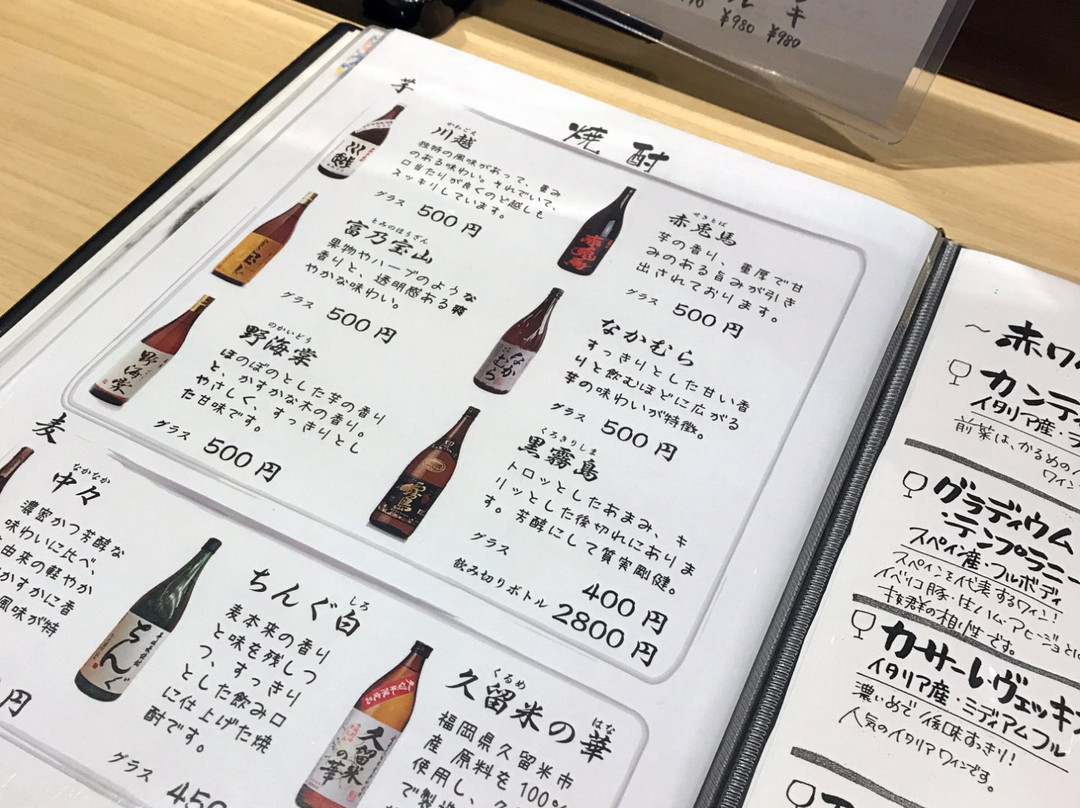 ¥980 ¥980
焼酎
芋
かわごえ
川越
独特の風味があって、重み
のある味わい。それでいて、
口当たりが良くのど越しも
スッキリしています。
グラス 500円
とみのほうざん
富乃宝山
果物やハーブのような
香りと、透明感ある爽
やかな味わい。
グラス 500円
のかいどう
野海棠
ほのぼのとした芋の香り
と、かすかな木の香り。
やさしく、すっきりとし
た甘味です。
グラス 500円
せきとば
赤兎馬
芋の香り、重厚で甘
みのある旨みが引き
出されております。
グラス 500円
なかむら
すっきりとした甘い香
りと飲むほどに広がる
芋の味わいが特徴。
グラス 500円
くろきりしま
黒霧島
トロッとしたあまみ、キ
リッとした後切れにありま
す。芳醇にして質実剛健。
グラス 400円
飲み切りボトル 2800円
麦
なかなか
中々
濃密かつ芳醇な
味わいに比べ、
由来の軽やか
かすかに香
風味が特
円
しろ
ちんぐ白
麦本来の香り
と味を残しつ
つ、すっきり
とした飲み口
に仕上げた焼
酎です。
グラス 450
くるめ はな
久留米の華
福岡県久留米市
産 原料を100%
使用し、
で製造
川越
野海棠
赤兎馬
なかむら
霧島
ちんぐ
久留米の華
～赤ワ
カンテ
イタリア産・
前菜は、かるめの
ワイン
グラディウム
・テンプラニー
スペイン産・フルボディ
スペインを代表するワイン!
イベリコ豚・生ハム・アヒージョとに
抜群の相性です。
カーサーレヴェッキ
イタリア産・ミディアムフル
濃いめで後味すっきり!
人気のイタリアワインです。